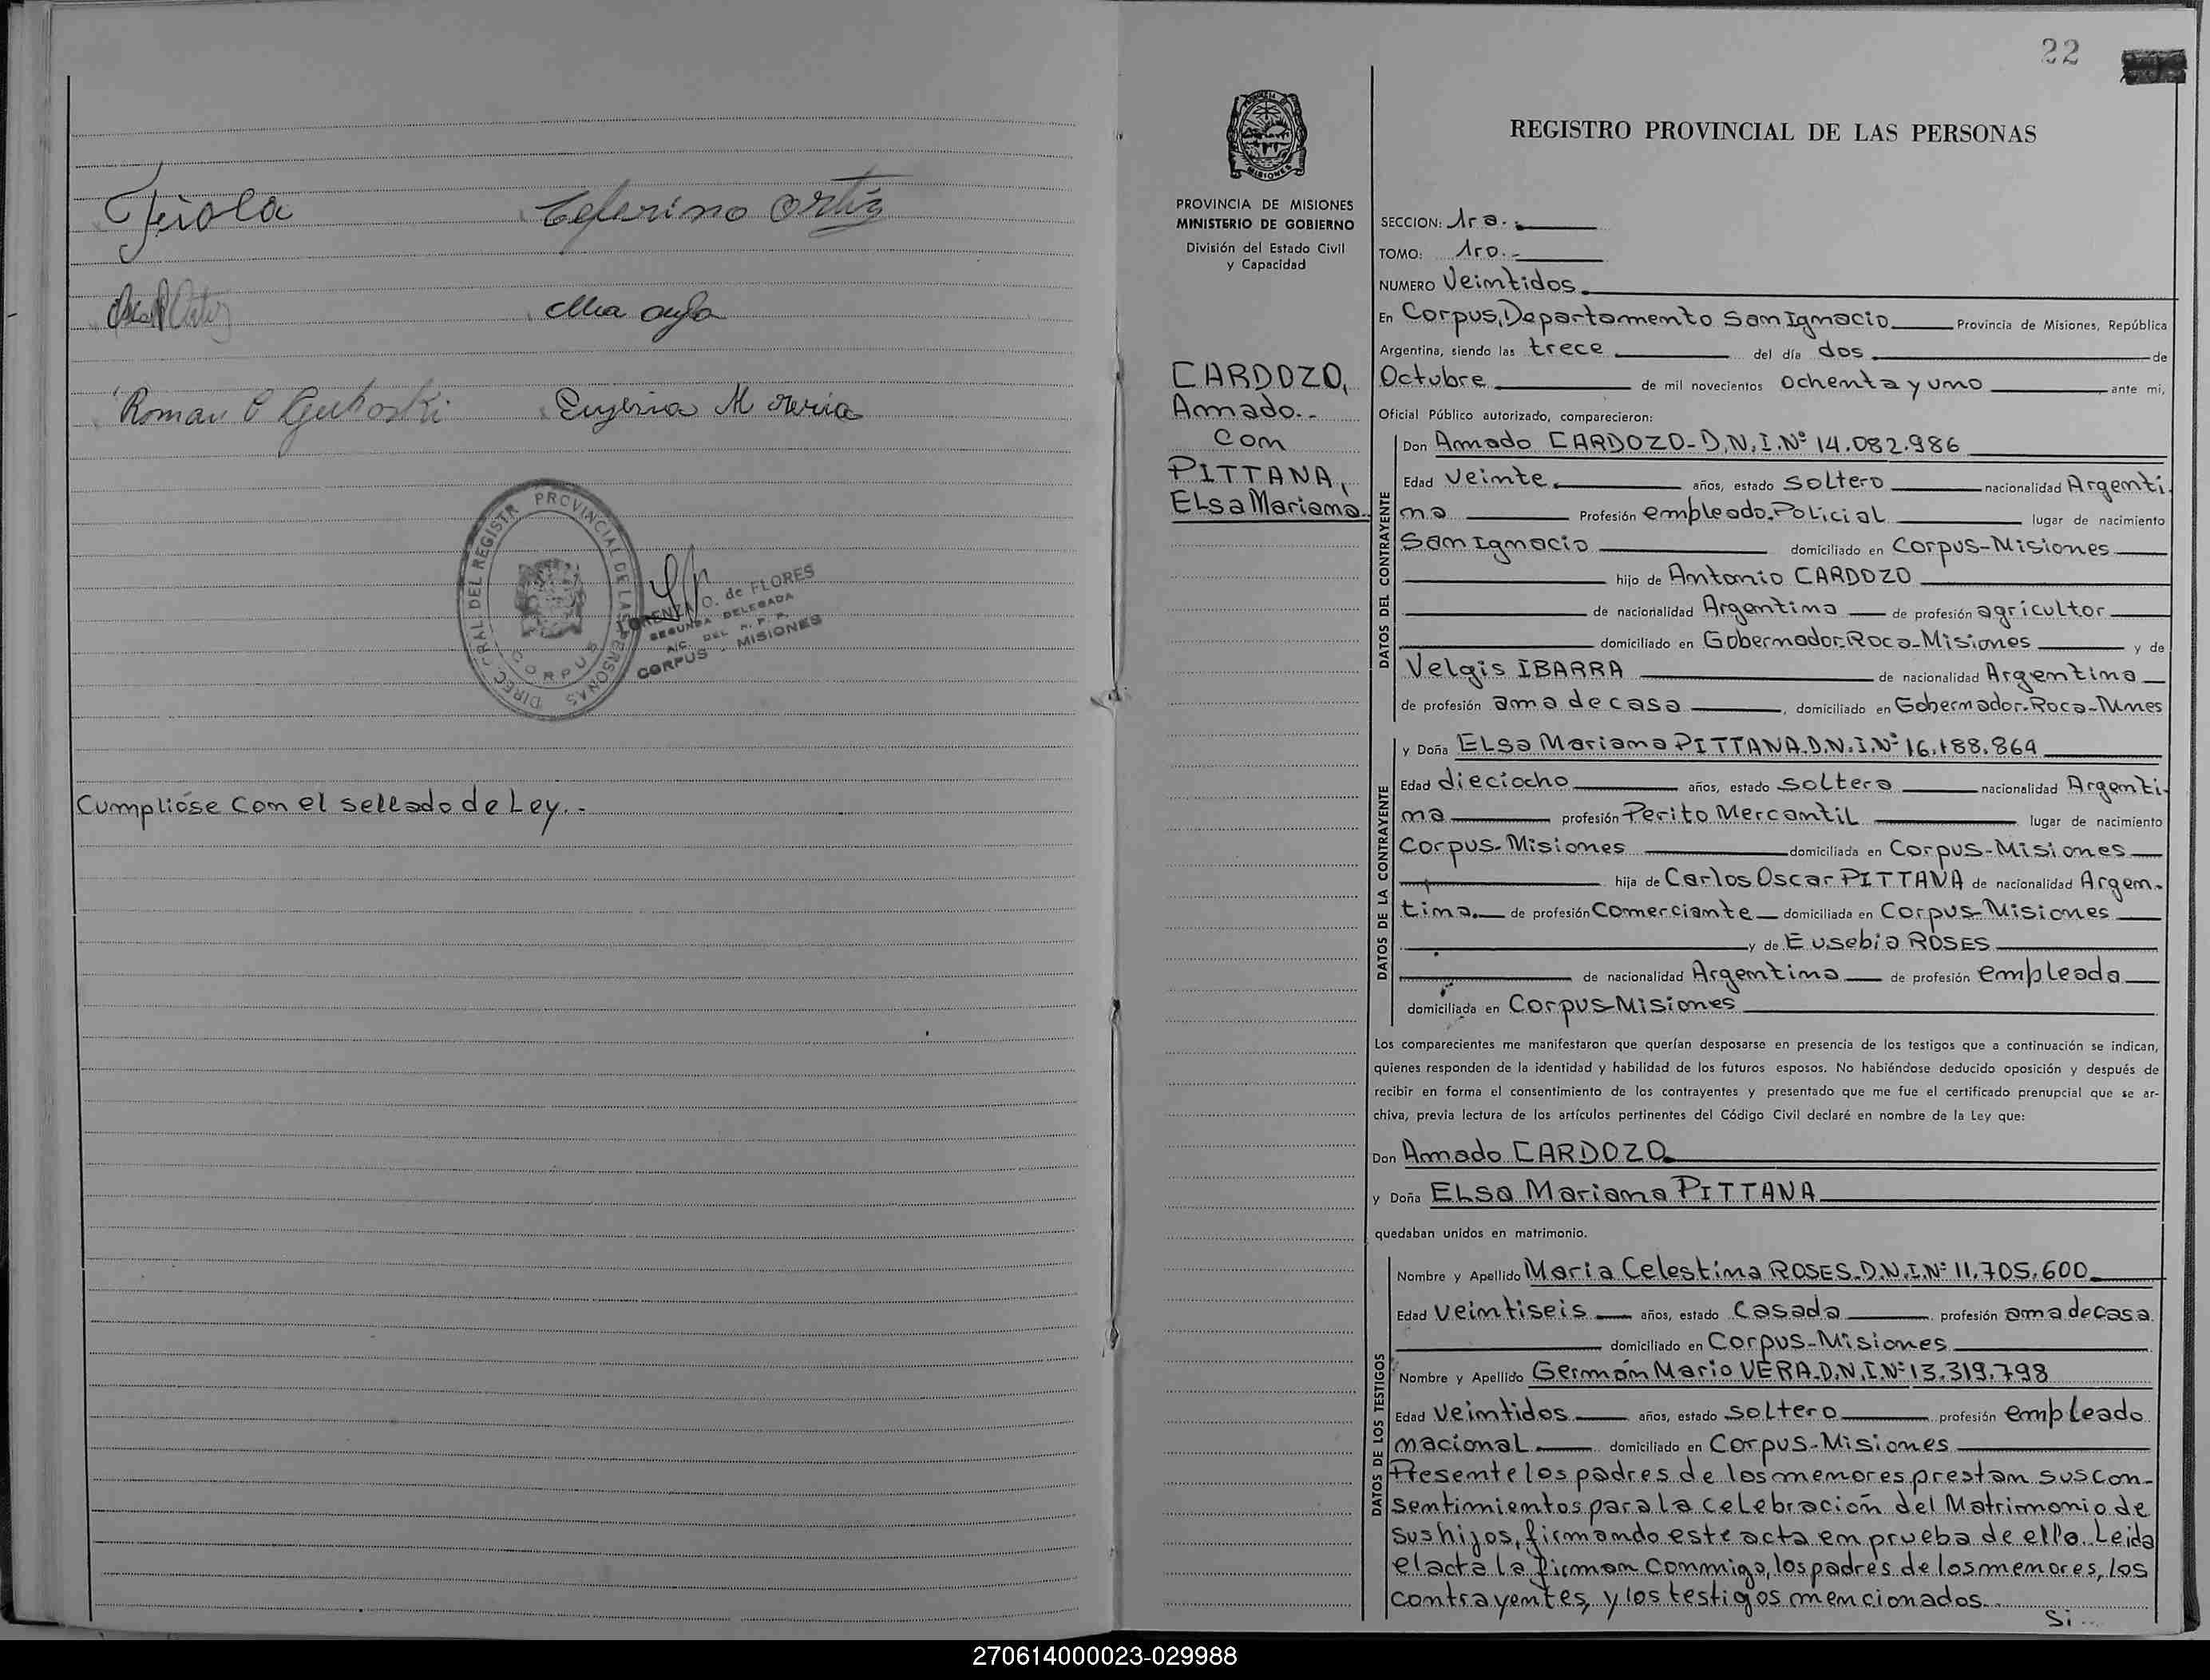 Ceferino Ortíz
Roman
Eugenia M
DIREC RAL DEL REGISTR PROVINCIAL DE LAS PERSONAS
CORPUS
LORENZA O. de FLORES
SEGUNDA DELEGADA
A/C. DEL R. P. P.
CORPUS - MISIONES
Cumplióse con el sellado de Ley.-
22
MISIONES
PROVINCIA DE MISIONES
MINISTERIO DE GOBIERNO
División del Estado Civil
y Capacidad
CARDOZO,
Amado.-
con
PITTANA,
Elsa Mariana.
REGISTRO PROVINCIAL DE LAS PERSONAS
SECCION: 1ra.-
TOMO: 1ro.-
NUMERO Veintidos.
En Corpus, Departamento San Ignacio Provincia de Misiones, República
Argentina, siendo las trece del día dos de
Octubre de mil novecientos ochenta y uno ante mi,
Oficial Público autorizado, comparecieron:
DATOS DEL CONTRAYENTE
Don Amado CARDOZO-D.N.I.Nº 14.082.986
Edad Veinte años, estado soltero nacionalidad Argenti
na Profesión empleado Policial lugar de nacimiento
San Ignacio domiciliado en Corpus-Misiones
hijo de Antonio CARDOZO
de nacionalidad Argentina de profesión agricultor
domiciliado en Gobernador Roca-Misiones y de
Velgis IBARRA de nacionalidad Argentina
de profesión ama de casa, domiciliado en Gobernador Roca-Mnes
DATOS DE LA CONTRAYENTE
y Doña Elsa Mariana PITTANA.D.N.I.Nº 16.188.864
Edad dieciocho años, estado soltera nacionalidad Argenti
na profesión Perito Mercantil lugar de nacimiento
Corpus-Misiones domiciliada en Corpus-Misiones
hija de Carlos Oscar PITTANA de nacionalidad Argen-
tina. de profesión Comerciante domiciliada en Corpus-Misiones
y de Eusebia ROSES
de nacionalidad Argentina de profesión empleada
domiciliada en Corpus-Misiones
Los comparecientes me manifestaron que querían desposarse en presencia de los testigos que a continuación se indican,
quienes responden de la identidad y habilidad de los futuros esposos. No habiéndose deducido oposición y después de
recibir en forma el consentimiento de los contrayentes y presentado que me fue el certificado prenupcial que se ar-
chiva, previa lectura de los artículos pertinentes del Código Civil declaré en nombre de la Ley que:
Don Amado CARDOZO.
y Doña Elsa Mariana PITTANA
quedaban unidos en matrimonio.
DATOS DE LOS TESTIGOS
Nombre y Apellido Maria Celestina ROSES.D.N.I.Nº 11.705.600
Edad veintiseis años, estado casada profesión ama de casa
domiciliado en Corpus-Misiones
Nombre y Apellido Germán Mario VERA.D.N.I.Nº 13.319.798
Edad Veintidos años, estado soltero profesión empleado
nacional domiciliado en Corpus-Misiones
Presente los padres de los menores prestan sus con-
sentimientos para la celebración del Matrimonio de
sus hijos, firmando este acta en prueba de ello. Leida
el acta la firman conmigo, los padres de los menores, los
contrayentes, y los testigos mencionados.
Si..
270614000023-029988